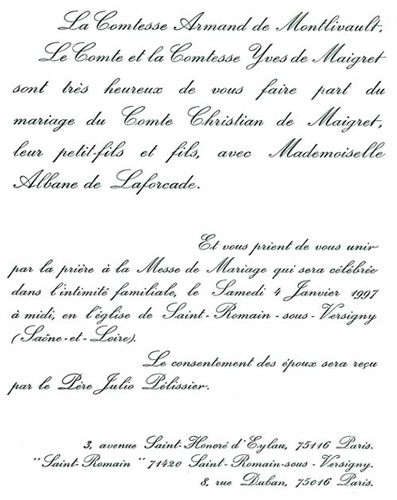 La Comtesse Armand de Montlivault,
Le Comte et la Comtesse Yves de Maigret
sont très heureux de vous faire part du
mariage du Comte Christian de Maigret,
leur petit-fils et fils, avec Mademoiselle
Albane de Laforcade.
Et vous prient de vous unir
par la prière à la Messe de Mariage qui sera célébrée
dans l'intimité familiale, le Samedi 4 Janvier 1997
à midi, en l'église de Saint-Romain-sous-Versigny
(Saône-et-Loire).
Le consentement des époux sera reçu
par le Père Julio Pélissier.
3, avenue Saint-Honoré d'Eylau, 75116 Paris.
"Saint-Romain" 71420 Saint-Romain-sous-Versigny.
8, rue Duban, 75016 Paris.